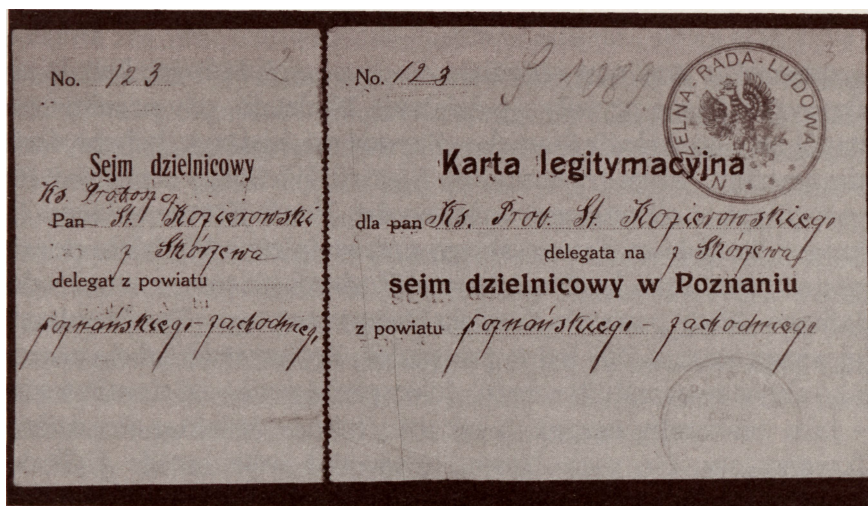 No. 123
2
Sejm dzielnicowy
Ks. Proboszcz
Pan St. Kozierowski
z Skórzewa
delegat z powiatu
poznańskiego-zachodnieg.
No. 123
S 1089.
3
NACZELNA · RADA · LUDOWA
Karta legitymacyjna
dla pan Ks. Prob. St. Kozierowskiego
delegata na z Skórzewa
sejm dzielnicowy w Poznaniu
z powiatu poznańskiego - zachodniego